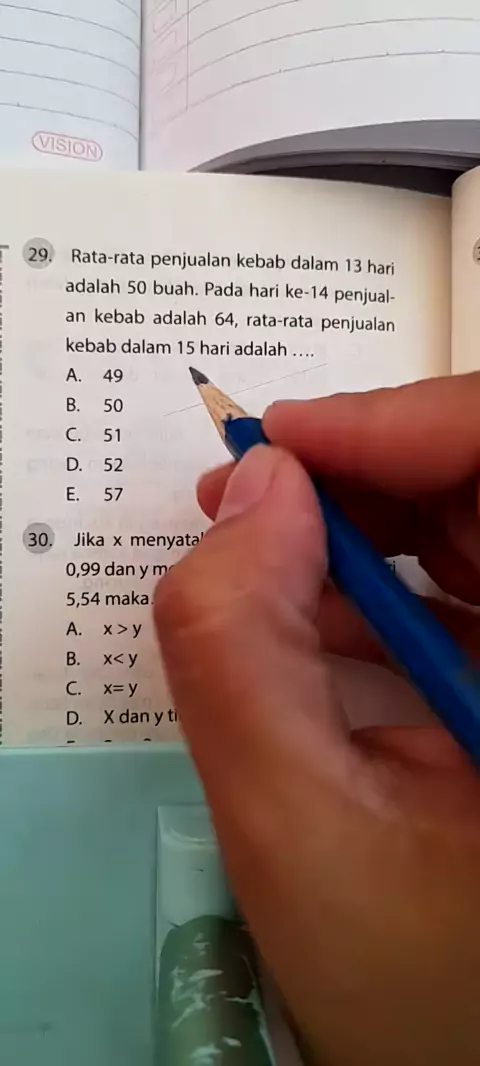 VISION
29. Rata-rata penjualan kebab dalam 13 hari
adalah 50 buah. Pada hari ke-14 penjual-
an kebab adalah 64, rata-rata penjualan
kebab dalam 15 hari adalah ....
A. 49
B. 50
C. 51
D. 52
E. 57
30. Jika x
0,99 dan y
5,54 maka
A. x > y
B. x< y
C. x= y
D. X dan y